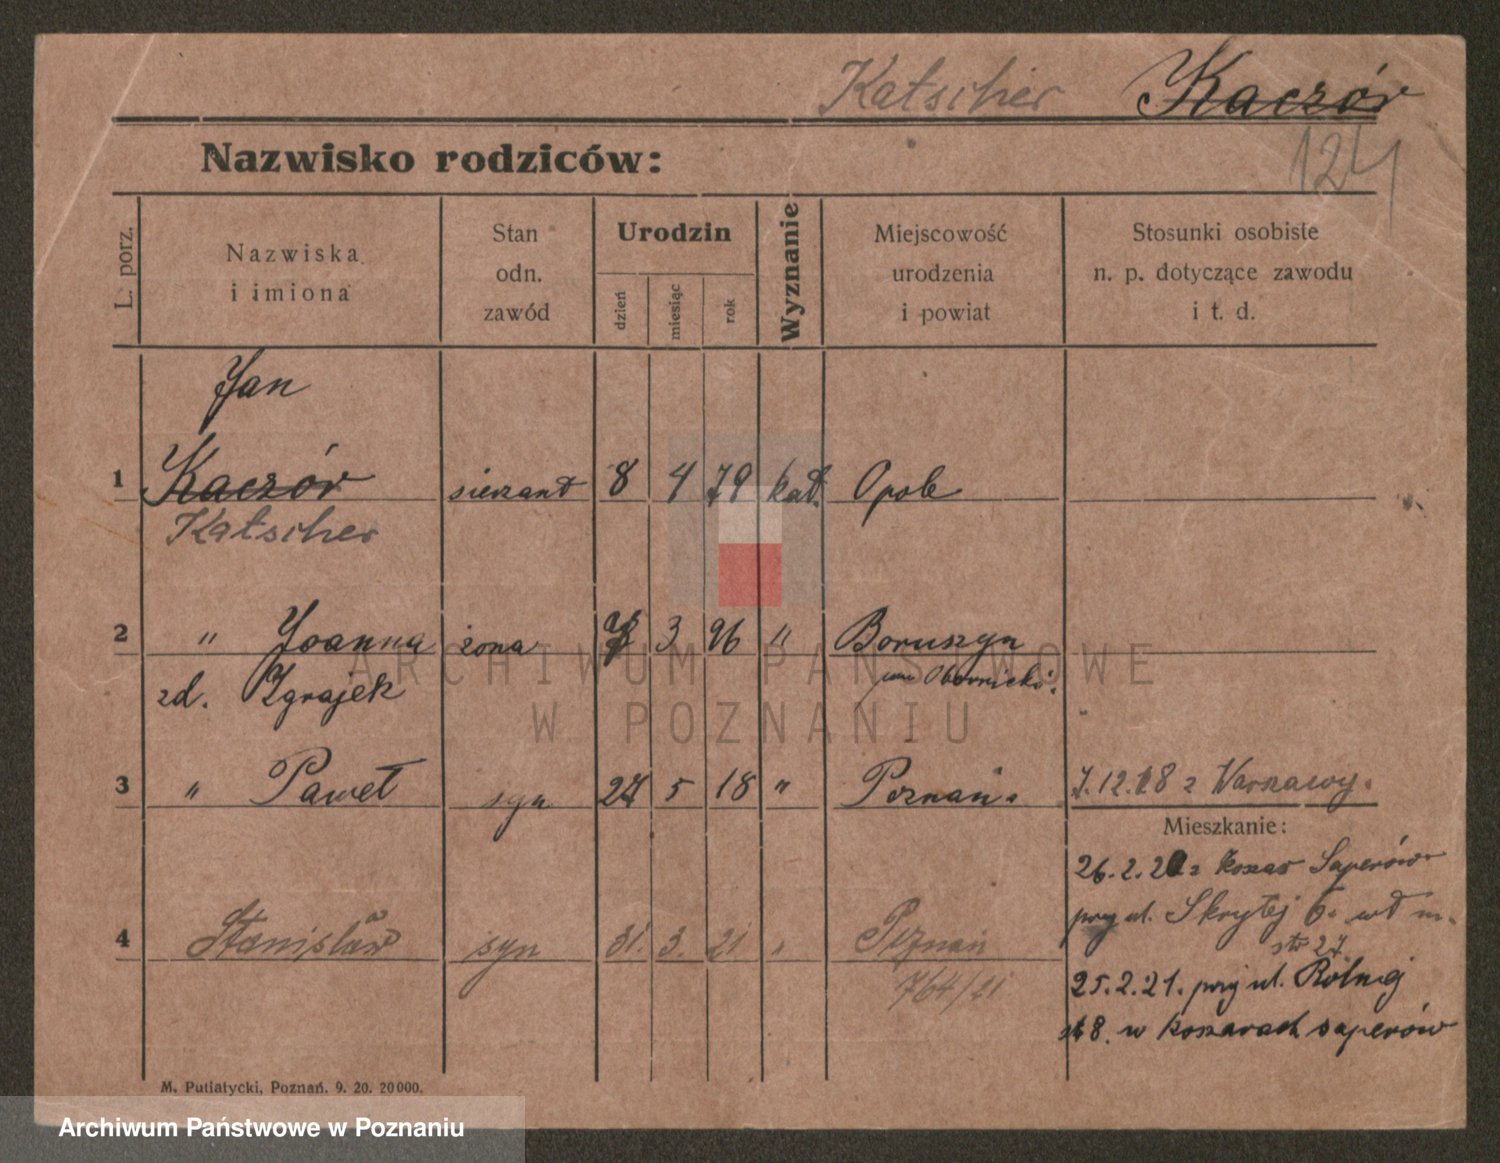 Katscher Kaczór
124
Nazwisko rodziców:
L. porz.
Nazwiska
i imiona
Stan
odn.
zawód
Urodzin
dzień
miesiąc
rok
Wyznanie
Miejscowość
urodzenia
i powiat
Stosunki osobiste
n. p. dotyczące zawodu
i t. d.
Jan
1 Kaczór sierżant 8 4 79 kat. Opole
Katscher
2 " Joanna żona 3 96 " Boruszyn
zd. Zgrajek pow Obornicki.
3 " Paweł syn 27 5 18 " Poznań. 7.12.18 z Warszawy.
Mieszkanie:
26.2.20 z koszar Saperów
przy ul. Skrytej 6. wd m.
str 27
4 Stanisław syn 31. 3. 21 " Poznań
764/21
25.2.21. przy ul. Rolnej
8. w koszarach saperów
M. Putiatycki, Poznań. 9. 20. 20000.
ARCHIWUM PAŃSTWOWE
W POZNANIU
Archiwum Państwowe w Poznaniu